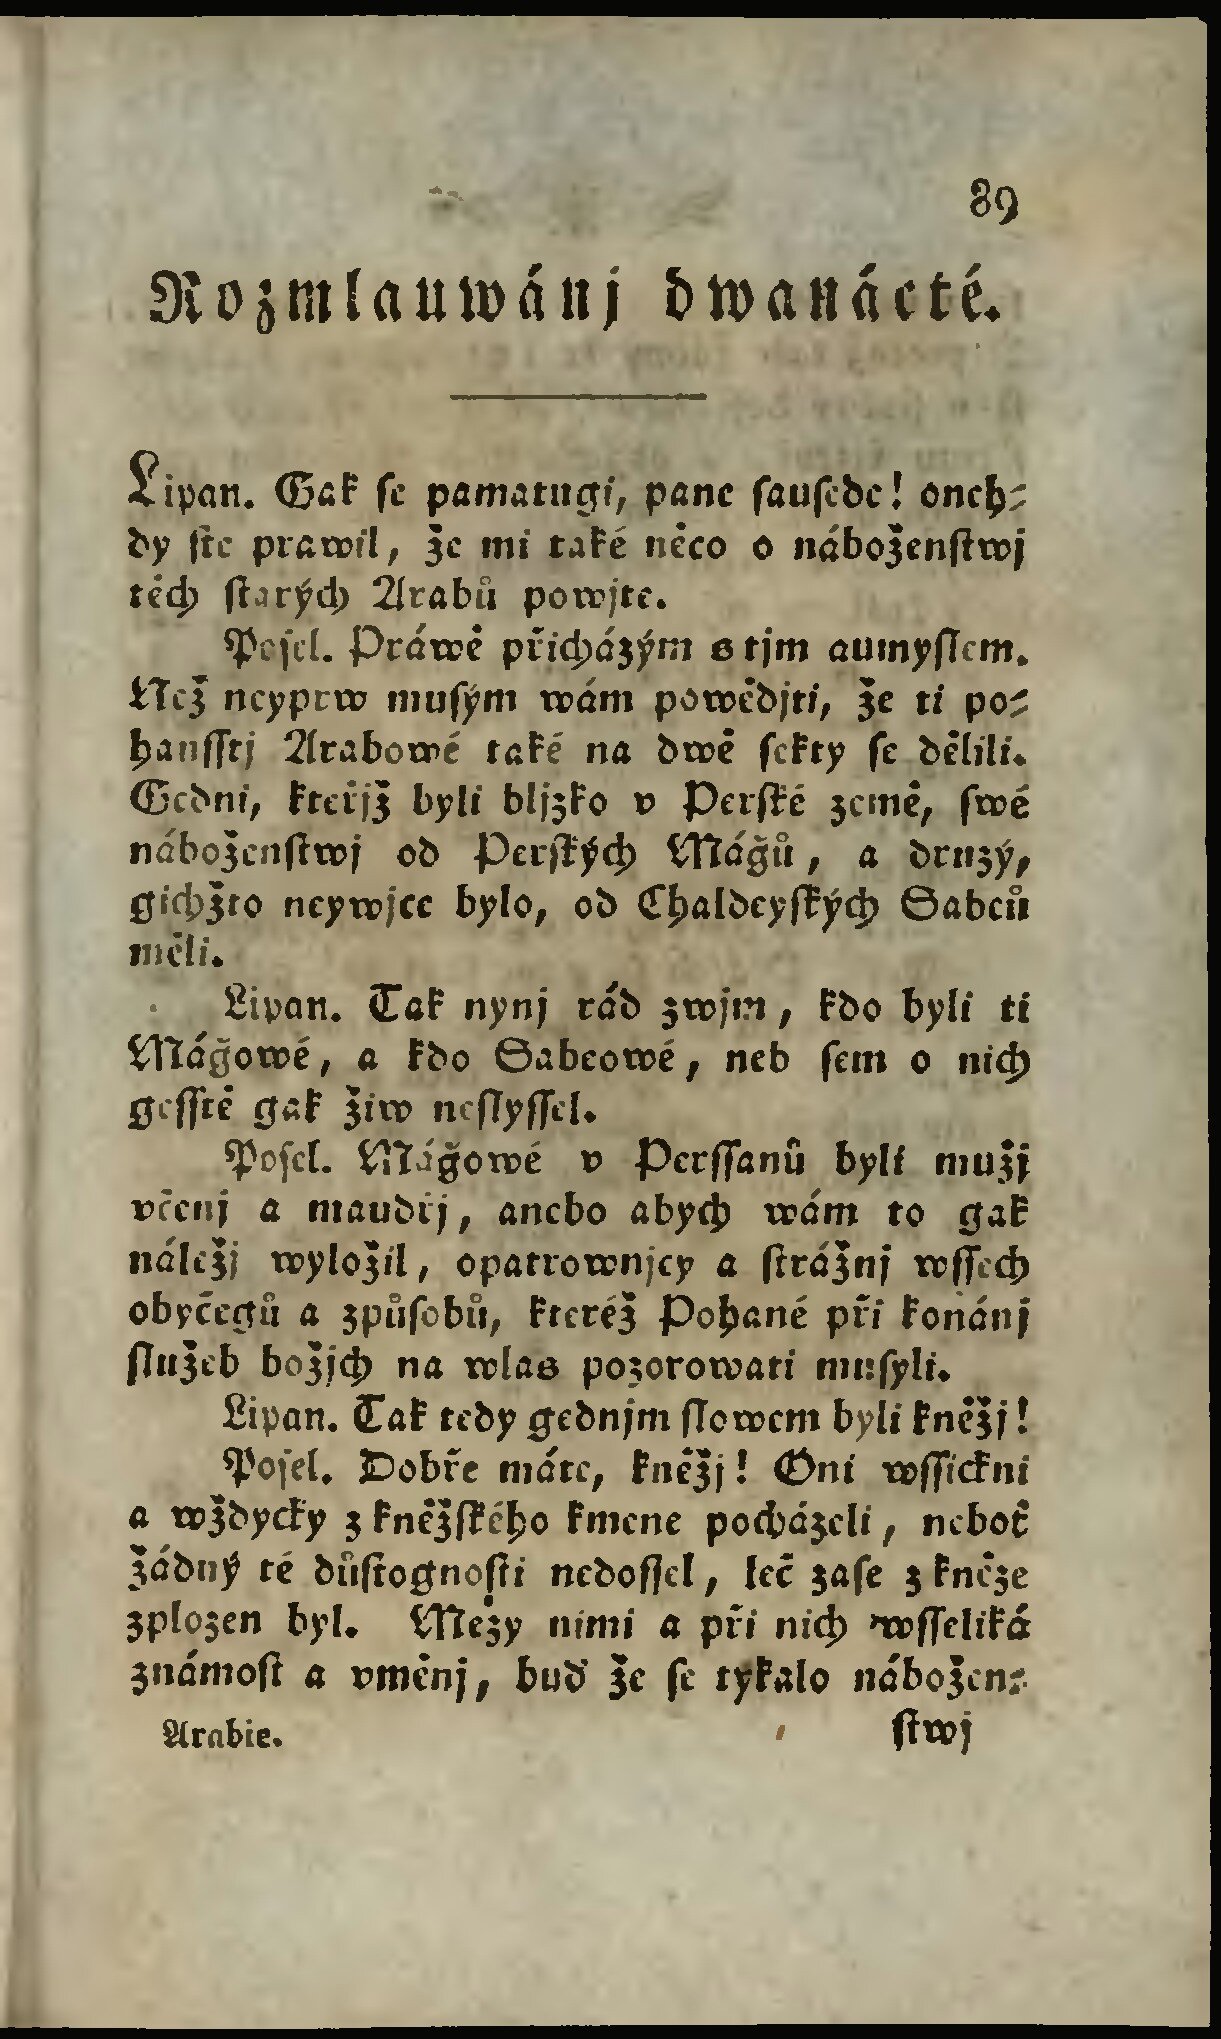 89
Rozmlauwánj dwanácté.
Lipan. Gak se pamatugi, pane sausede! oneh⸗
dy ste prawil, že mi také něco o náboženstwj
těch starých Arabů powjte.
Posel. Práwě přicházým s tjm aumyslem.
Než neyprw musým wám powědjti, že ti po⸗
hansstj Arabowé také na dwě sekty se dělili.
Gedni, kteřjž byli bljzko v Perské země, swé
náboženstwj od Perských Máǧů, a druzý,
gichžto neywjce bylo, od Chaldeyských Sabeů
měli.
Lipan. Tak nynj rád zwjm, kdo byli ti
Máǧowé, a kdo Sabeowé, neb sem o nich
gesstě gak žiw neslyssel.
Posel. Máǧowé v Perssanů byli mužj
včenj a maudřj, anebo abych wám to gak
náležj wyložil, opatrownjcy a strážnj wssech
obyčegů a způsobů, kteréž Pohané při konánj
služeb božjch na wlas pozorowati musyli.
Lipan. Tak tedy gednjm slowem byli kněžj!
Posel. Dobře máte, kněžj! Oni wssickni
a wždycky z kněžského kmene pocházeli, neboť
žádný té důstognosti nedossel, leč zase z kněze
zplozen byl. Mezy nimi a při nich wsseliká
známost a vměnj, buď že se tykalo nábožen⸗
Arabie. stwj